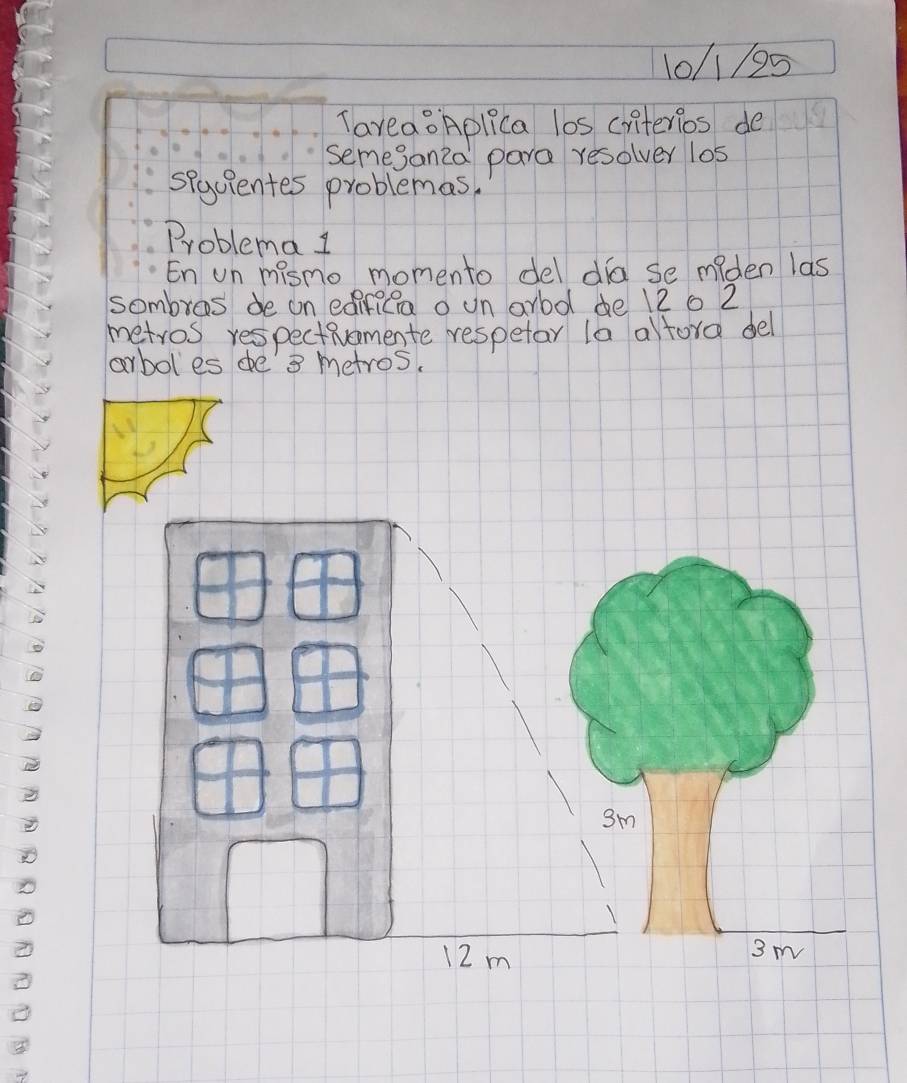 10/1/25
Tarea: Aplica los criterios de
semejanza para resolver los
siguientes problemas.
Problema 1
En un mismo momento del día se miden las
sombras de un edificia o un arbol de 12 o 2
metros respectivamente respetar la altura del
arbol es de 3 metros.
3m
12 m
3 m